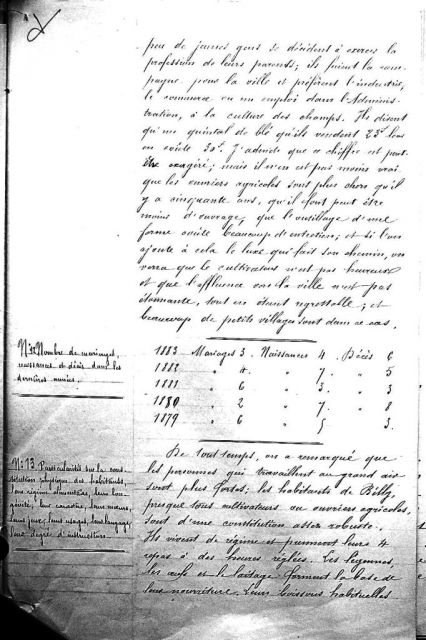 peu de jeunes gens se décident à exercer la
profession de leurs parents; ils fuient la cam-
pagne pour la ville et préfèrent l'industrie,
le commerce ou un emploi dans l'Adminis-
tration, à la culture des champs. Ils disent
qu'un quintal de blé qu'ils vendent 23f leur
en coûte 30f. J'admets que ce chiffre est peut-
être exagéré; mais il n'en est pas moins vrai
que les ouvriers agricoles sont plus chers qu'il
y a cinquante ans, qu'il font peut être
moins d'ouvrage, que l'outillage d'une
ferme coûte beaucoup d'entretien; et si l'on
ajoute à cela le luxe qui fait son chemin, on
verra que le cultivateur n'est pas heureux
et que l'affluence vers la ville n'est pas
étonnante, tout en étant regrettable; et
beaucoup de petits villages sont dans ce cas.
Nombre de mariages,
naissances et décès dans les
dernières années.
1883 Mariages 3. Naissances 4. Décès 6
1882 " 4. " 7. " 5
1881 " 6 " 3. " 3
1880 " 2 " 7. " 8
1879 " 6 " 5 3.
N: 13. Particularités sur la cons-
titution physique des habitants,
leur régime alimentaire, leur lon-
gévité, leur caractère, leurs mœurs,
leurs jeux, leurs usages, leur langage,
leur degré d'instruction.
De tout temps, on a remarqué que
les personnes qui travaillent au grand air
sont plus fortes; les habitants de Billy,
presque tous cultivateurs ou ouvriers agricoles,
sont d'une constitution assez robuste.
Ils vivent de régime et prennent leurs 4
repas à des heures réglées. Les légumes,
les œufs et le laitage forment la base de
leur nourriture. Leurs boissons habituelles